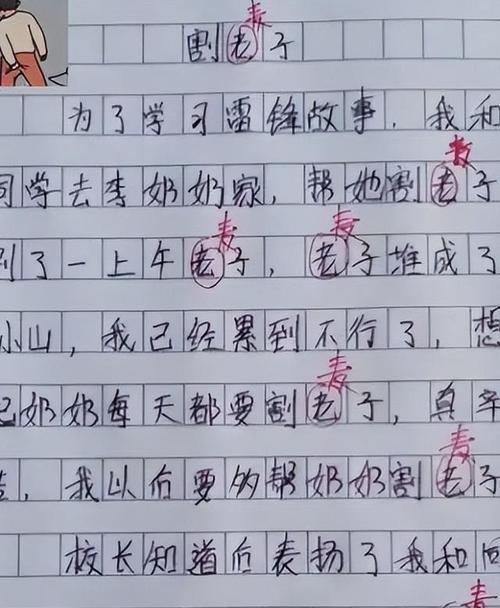 麦
割老子
为了学习雷锋故事，我和
麦
同学去李奶奶家，帮她割老子
麦 麦
割了一上午老子，老子堆成了
小山，我已经累到不行了，想
麦
起奶奶每天都要割老子，真辛
麦
苦，我以后要多帮奶奶割老子
校长知道后表扬了我和同
麦